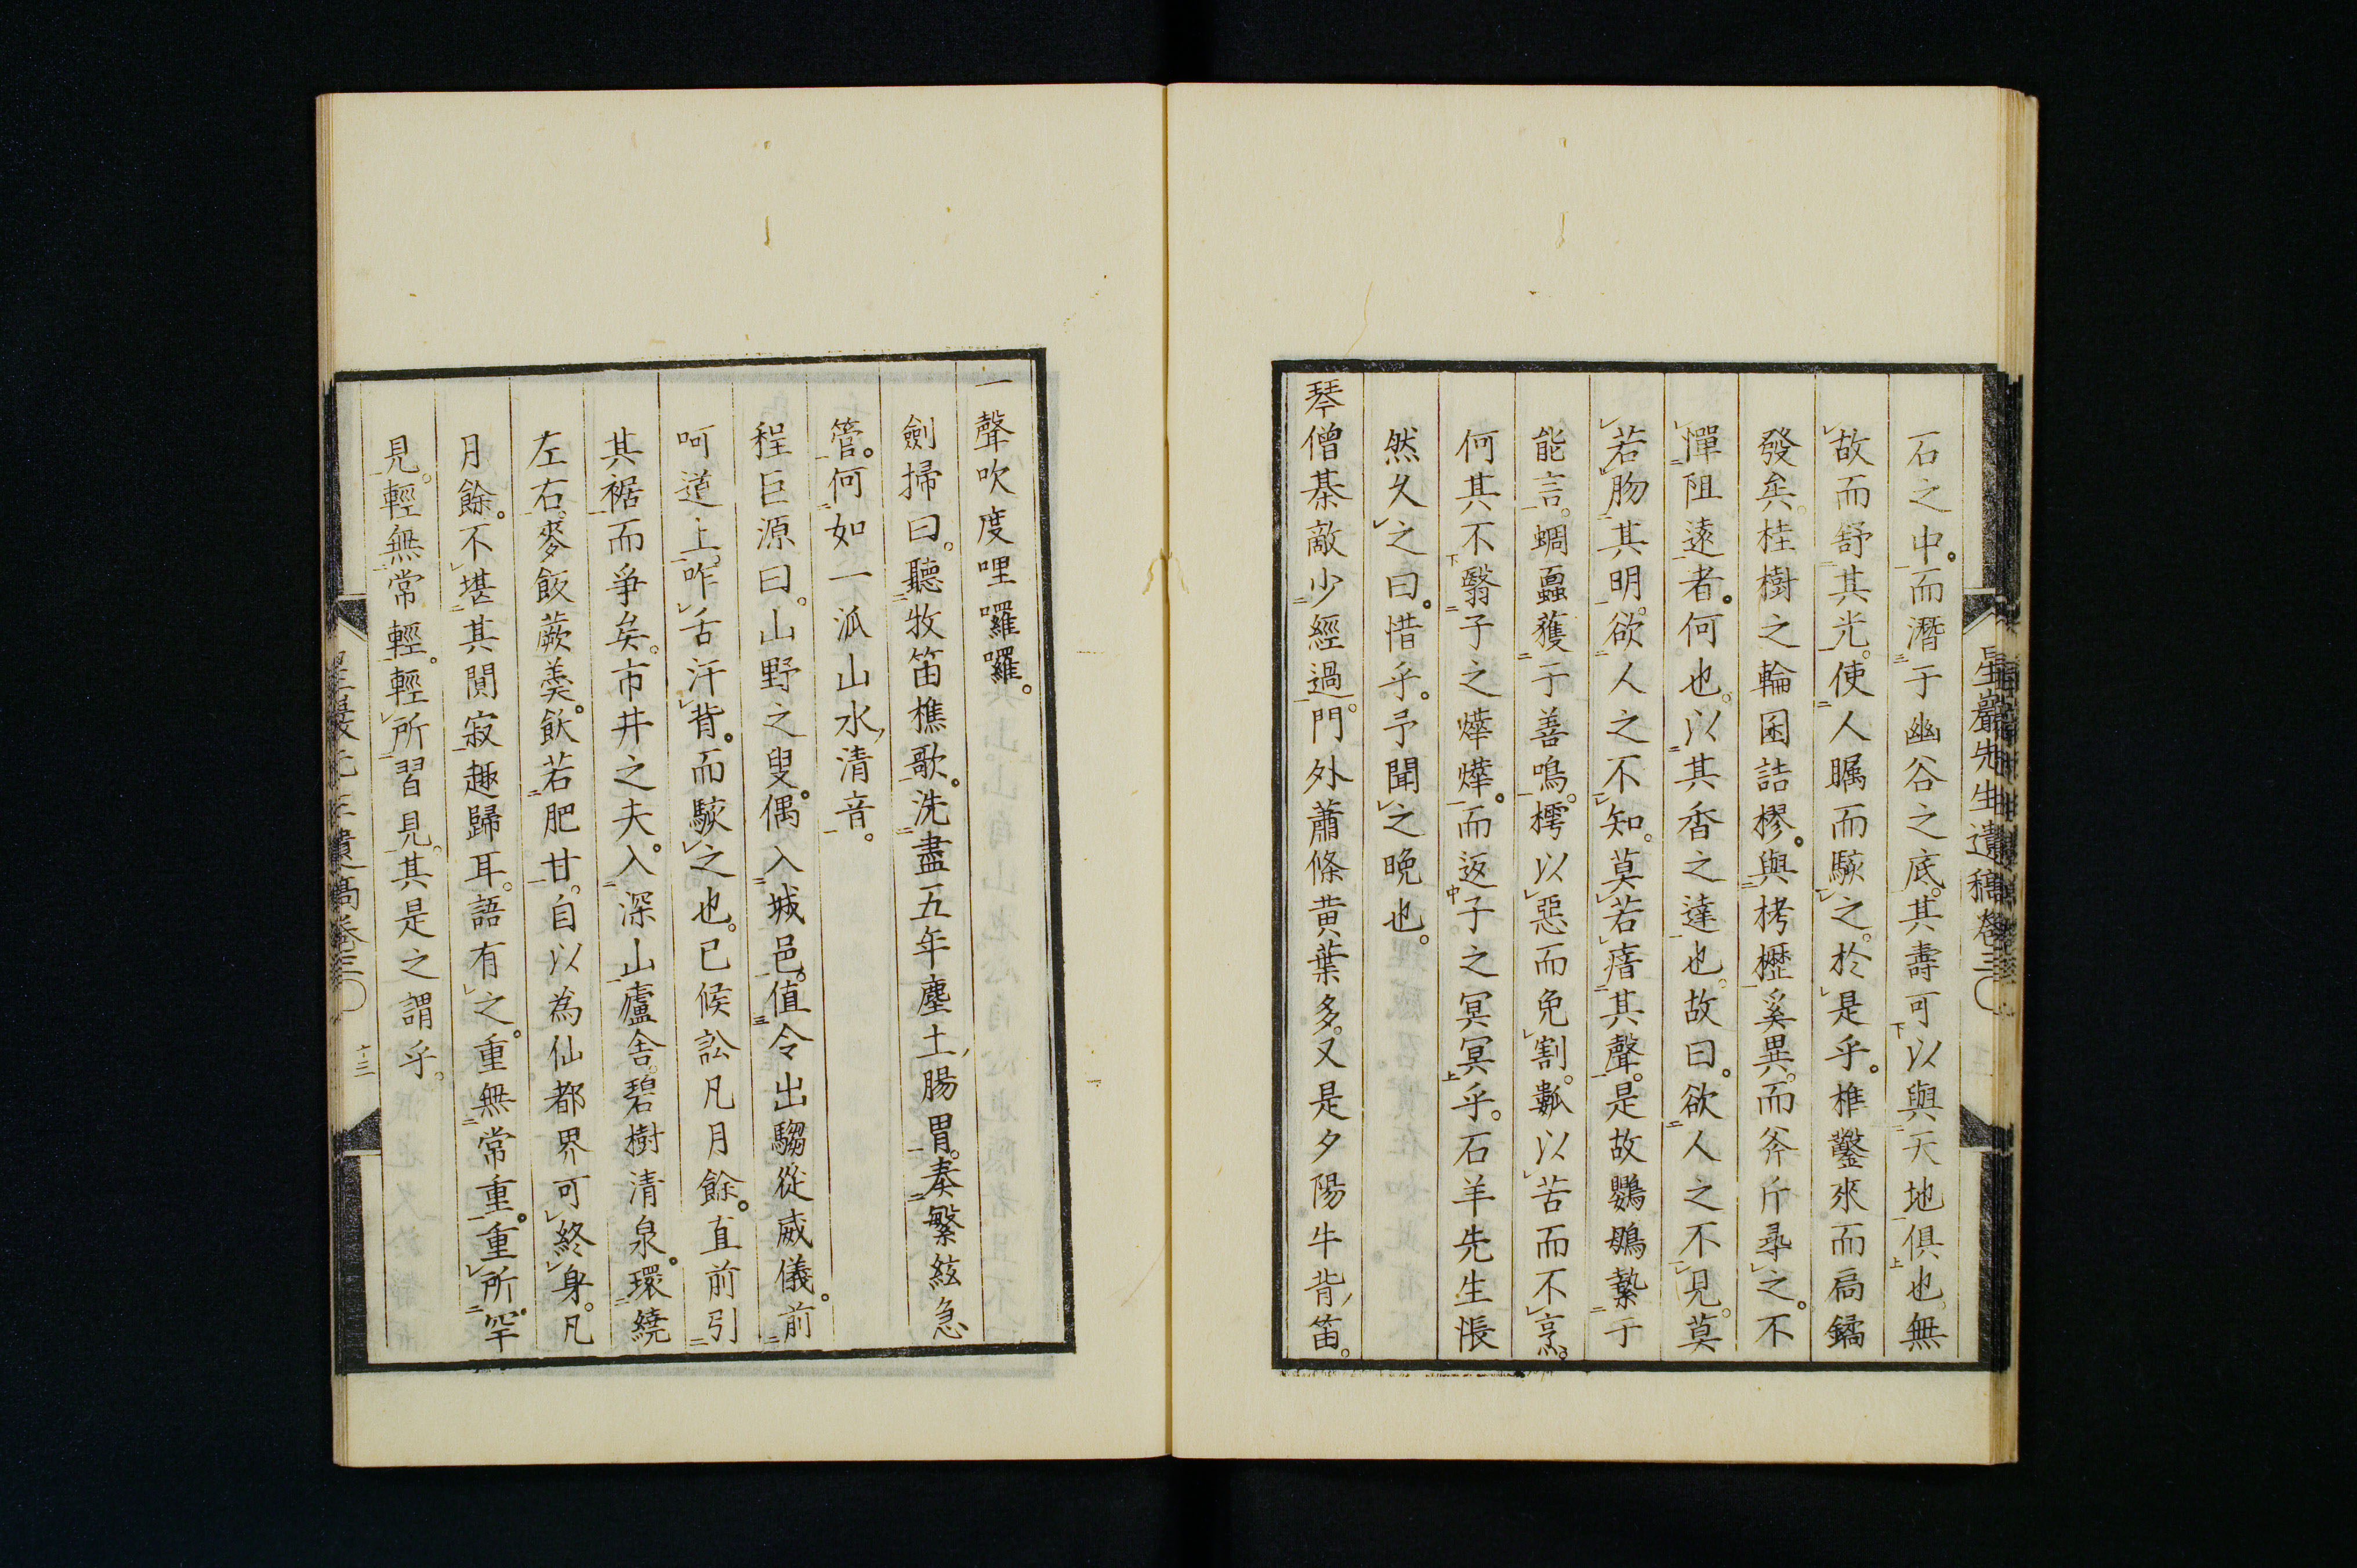 星巖先生遺稿卷三
石之中。而潛于幽谷之底。其壽可以與天地俱也。無
故而舒其光。使人矚而駭之。於是乎。椎鑿來而扃鐍
發矣。桂樹之輪囷詰樛。與栲櫪奚異。而斧斤尋之。不
憚阻遠者。何也。以其香之達也。故曰。欲人之不見。莫
若肳其明。欲人之不知。莫若瘖其聲。是故鸚鵡縶于
能言。蜩蠠獲于善鳴。樗以惡而免割。瓢以苦而不烹。
何其不翳子之燁燁。而返子之冥冥乎。石羊先生悵
然久之曰。惜乎。予聞之晚也。
琴僧棊敵少經過。門外蕭條黃葉多。又是夕陽牛背笛。
一聲吹度哩囉囉。
劍掃曰。聽牧笛樵歌。洗盡五年塵土腸胃。奏繁絃急
管。何如一派山水清音。
程巨源曰。山野之叟。偶入城邑。值令出騶從威儀。前
呵道上。咋舌汗背。而駭之也。已候訟凡月餘。直前引
其裾而爭矣。市井之夫。入深山廬舍。碧樹清泉。環繞
左右。麥飯蕨羹。飫若肥甘。自以為仙都界可終身。凡
月餘。不堪其閴寂趣歸耳。語有之。重無常重。重所罕
見。輕無常輕。輕所習見。其是之謂乎。
十三